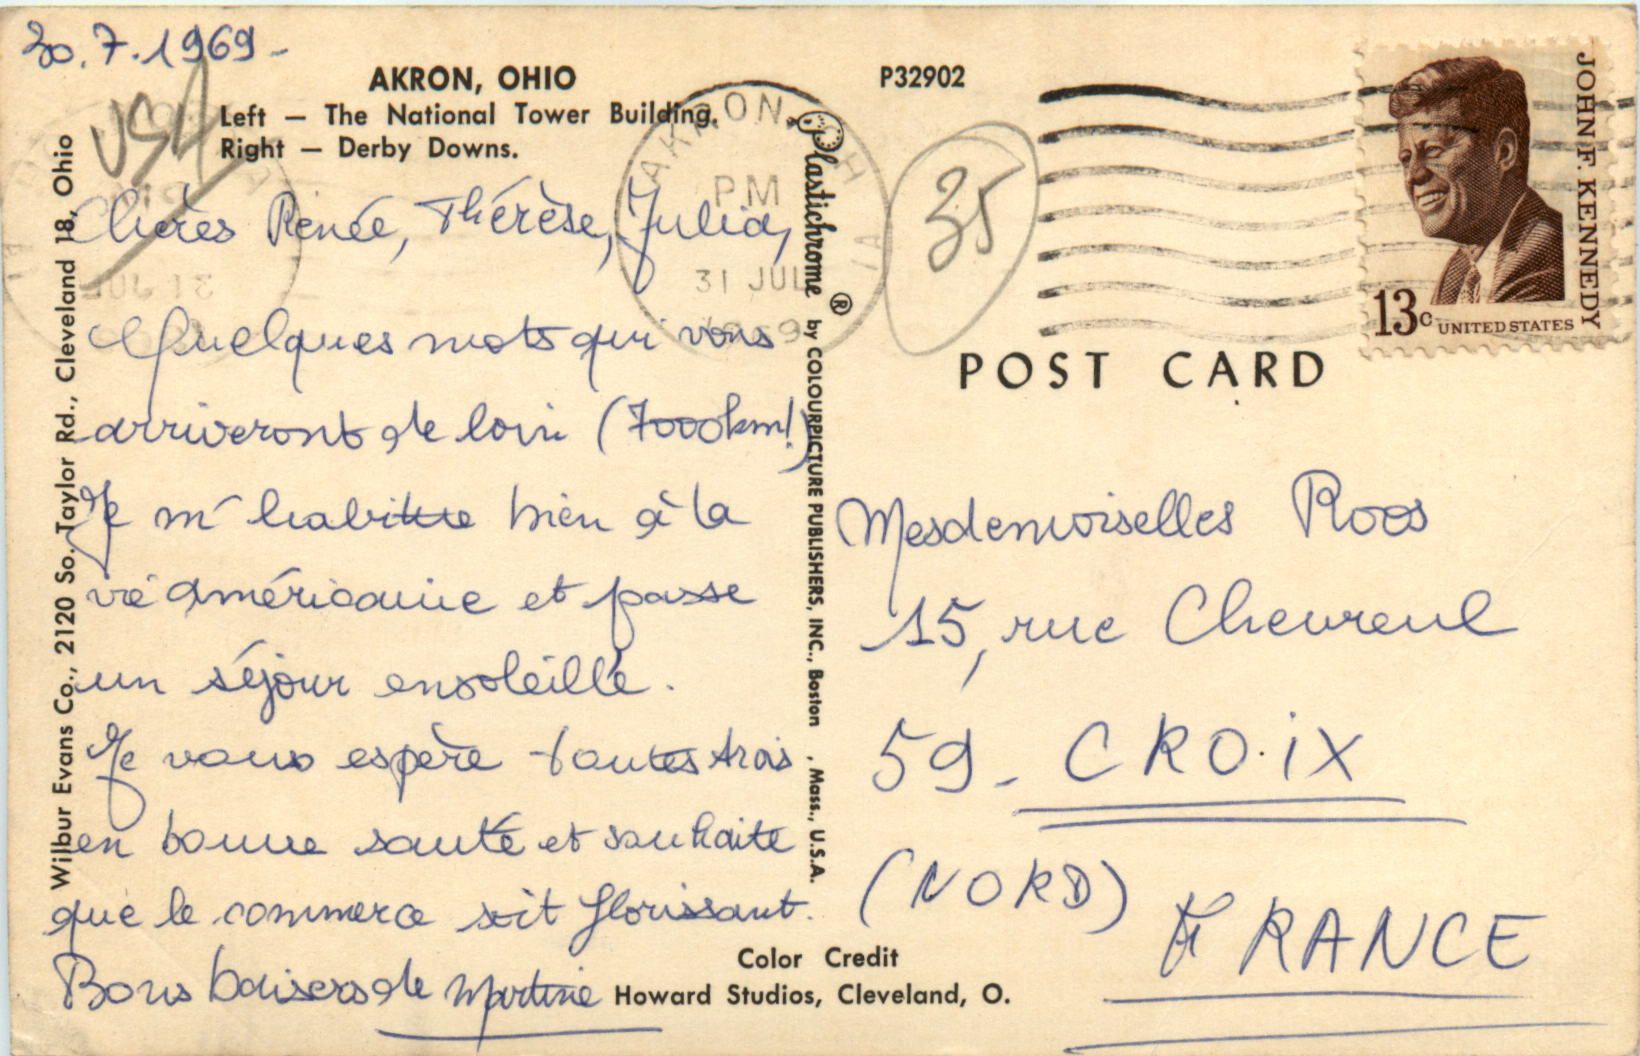 30.7.1969-
USA
AKRON, OHIO
Left — The National Tower Building.
Right — Derby Downs.
P32902
Chères Renée, Thérèse, Julia,
Quelques mots qui vous
arriveront de loin (7000km!)
Je m'habitue bien à la
vie américaine et passe
un séjour ensoleillé.
Je vous espère toutes trois
en bonne santé et souhaite
que le commerce soit florissant.
Bons baisers de Martine
Wilbur Evans Co., 2120 So. Taylor Rd., Cleveland 18, Ohio
Plastichrome ® by COLOURPICTURE PUBLISHERS, INC., Boston , Mass., U.S.A.
AKRON, OH
PM
31 JUL
1969
35
JOHN F. KENNEDY
13c UNITED STATES
POST CARD
Mesdemoiselles Roos
15, rue Chevreul
59 - CROIX
(NORD)
FRANCE
Color Credit
Howard Studios, Cleveland, O.